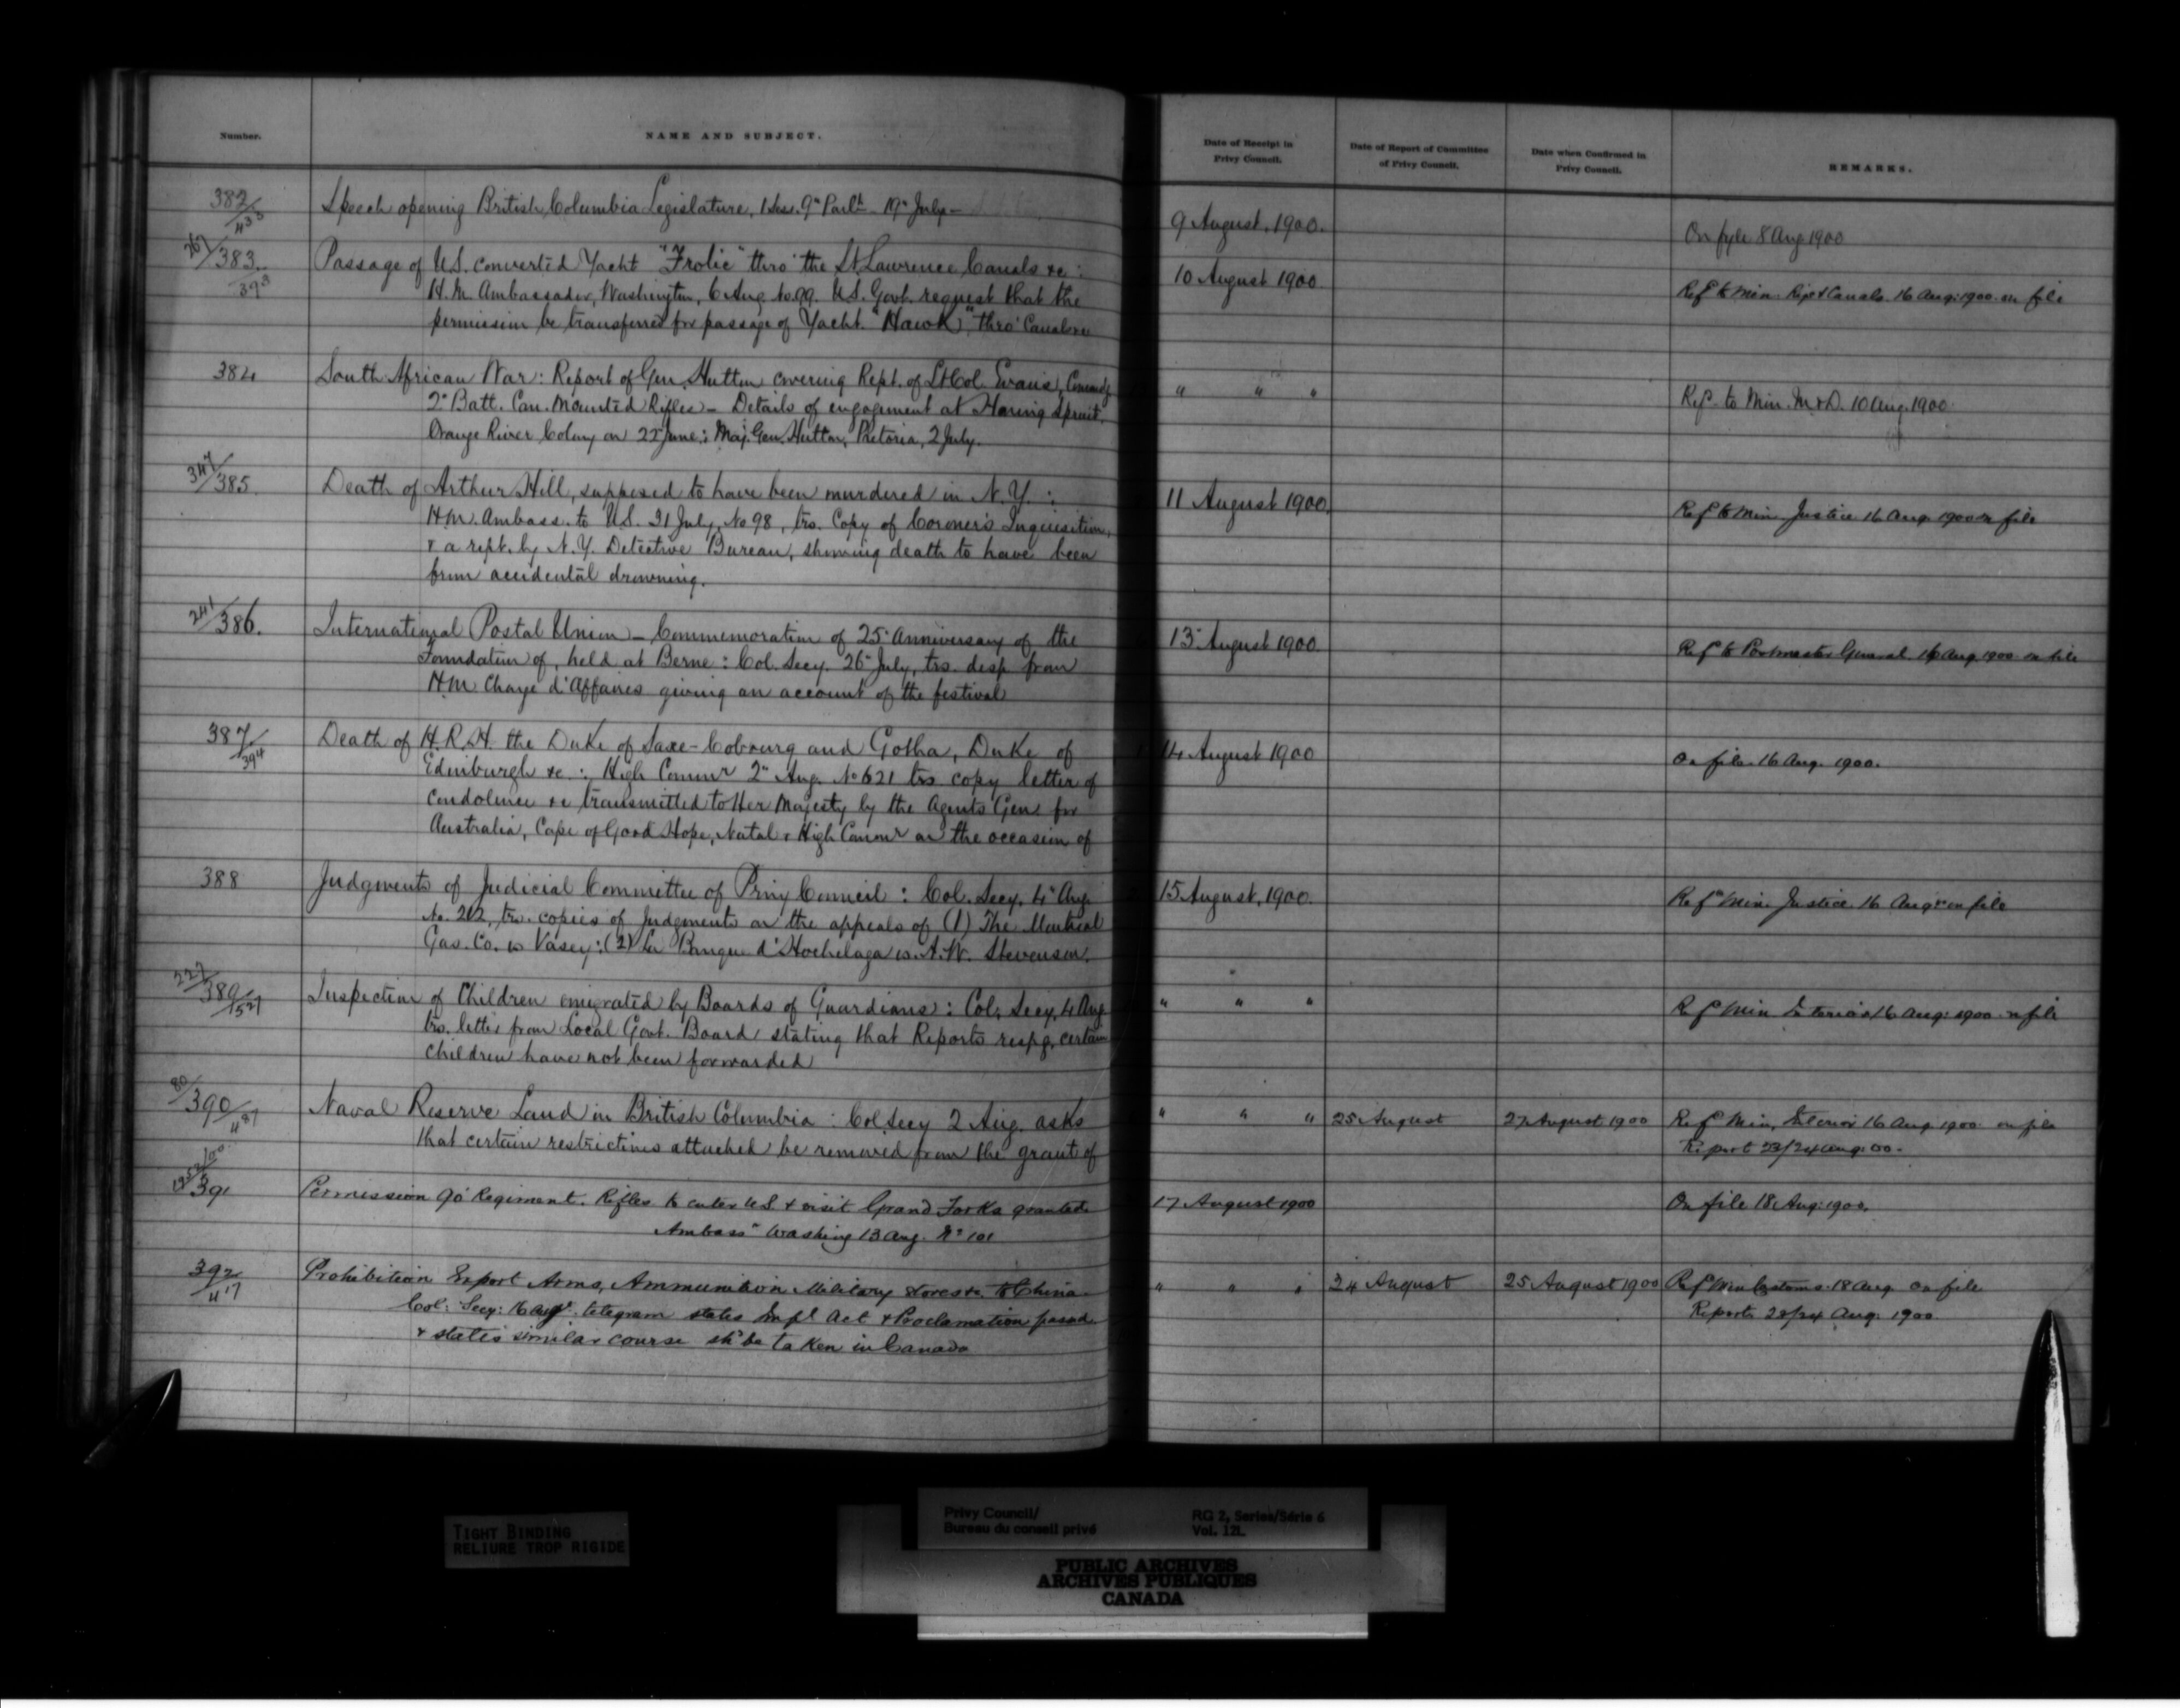 Number.
NAME AND SUBJECT.
Date of Receipt in
Privy Council.
Date of Report of Committee
of Privy Council.
Date when Confirmed in
Privy Council.
REMARKS.
382/433
Speech opening British Columbia Legislature, 1 Sess. 9" Parlt - 19" July -
9 August, 1900.
On fyle 8 Aug 1900
267/383/393
Passage of U.S. converted Yacht "Frolic" thro' the St. Lawrence Canals &c :
10 August 1900
H.M. Ambassador, Washington, 6 Aug. No. 99. U.S. Govt. request that the
Ref to Min. Rys & Canals. 16 Aug: 1900. on file
permission be transferred for passage of Yacht "Hawk", thro' Canals &c
384
South African War: Report of Gen. Hutton covering Rept. of Lt Col. Evans, Comndg
" " "
Ref. to Min. M. & D. 10 Aug. 1900.
2" Batt. Can. Mounted Rifles - Details of engagement at Honing Spruit,
Orange River Colony on 22 June; Maj. Gen. Hutton, Pretoria, 2 July.
347/385.
Death of Arthur Hill, supposed to have been murdered in N.Y. :
11 August 1900.
H.M. Ambass. to U.S. 31 July, No 98, trs. Copy of Coroner's Inquisition,
Ref to Min Justice 16 Aug. 1900 on file
& a rept. by N.Y. Detective Bureau, showing death to have been
from accidental drowning.
241/386.
International Postal Union - Commemoration of 25" Anniversary of the
13" August 1900.
Ref to Postmaster General. 16 Aug 1900 on file
Foundation of, held at Berne : Col. Secy. 26" July, trs. desp. from
H.M. Chargé d'Affaires giving an account of the festival
387/394
Death of H.R.H. the Duke of Saxe-Cobourg and Gotha, Duke of
14 August 1900
On file 16 Aug. 1900.
Edinburgh &c. : High Commr 2" Aug. No 621 trs copy letter of
condolence &c transmitted to Her Majesty by the Agents Gen. for
Australia, Cape of Good Hope, Natal & High Commr on the occasion of
388
Judgments of Judicial Committee of Privy Council : Col. Secy. 4" Aug.
15 August, 1900.
Ref Min. Justice 16 Aug on file
No. 212, trs. copies of Judgments on the appeals of (1) The Montreal
Gas. Co. vs Vasey: (2) La Banque d'Hochelaga vs. A.W. Stevenson.
227/389/527
Inspection of Children emigrated by Boards of Guardians : Col: Secy, 4 Aug
" " "
Ref Min Interior 16 Aug: 1900 on file
trs. letter from Local Govt. Board stating that Reports respg. certain
children have not been forwarded
80/390/487
Naval Reserve Land in British Columbia : Col Secy 2 Aug. asks
" " "
25 August
27 August 1900
Ref Min, Interior 16 Aug 1900 on file
that certain restrictions attached be removed from the grant of
Report 23/24 Aug: 00.
391
Permission 90' Regiment. Rifles to enter U.S. & visit Grand Forks granted
17 August 1900
On file 18 Aug: 1900.
Ambassr Washing 13 Aug. No 101
392/417
Prohibition Export Arms, Ammunition Military stores &c. to China
" " "
24 August
25 August 1900
Ref Min Customs. 18 Aug. on file
Col: Secy: 16 Aug. telegram states Impl Act & Proclamation passed
Reports 20/24 Aug: 1900.
& states similar course shd be taken in Canada
TIGHT BINDING
RELIURE TROP RIGIDE
Privy Council/
Bureau du conseil privé
RG 2, Series/Série 6
Vol. 121.
PUBLIC ARCHIVES
ARCHIVES PUBLIQUES
CANADA